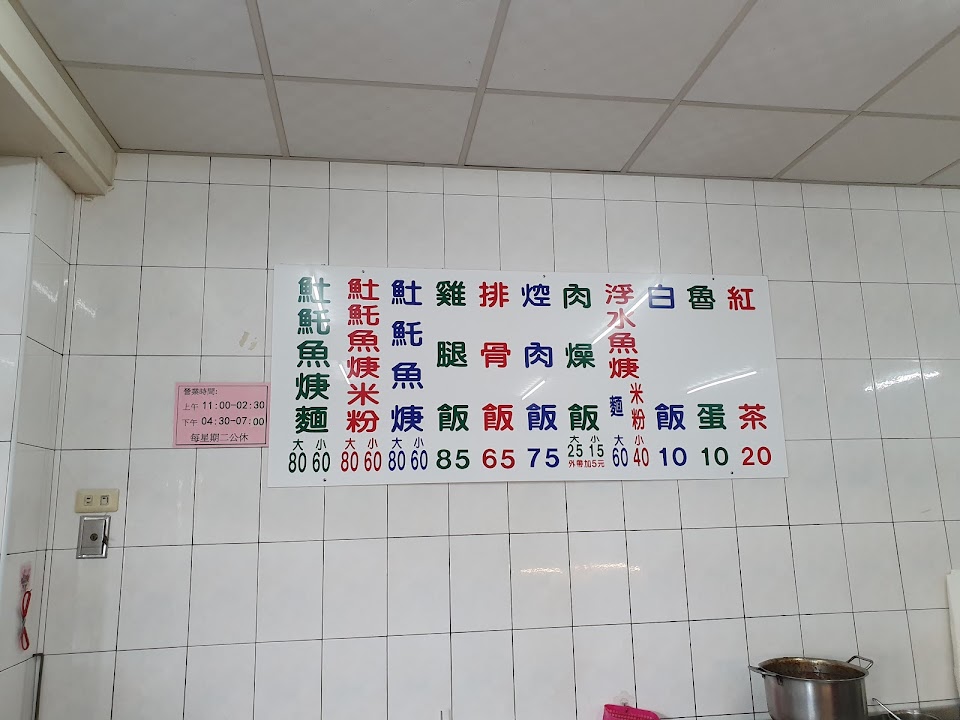 營業時間:
上午 11:00-02:30
下午 04:30-07:00
每星期二公休
𩵚魠魚焿麵
大 小
80 60
𩵚魠魚焿米粉
大 小
80 60
𩵚魠魚焿
大 小
80 60
雞腿飯
85
排骨飯
65
焢肉飯
75
肉燥飯
大 小
25 15
外帶加5元
浮水魚焿 麵 米粉
大 小
60 40
白飯
10
魯蛋
10
紅茶
20